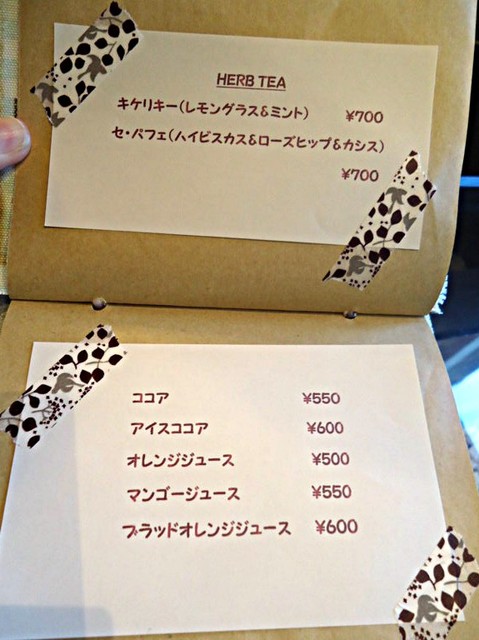 HERB TEA
キケリキー(レモングラス&ミント) ¥700
セ・パフェ(ハイビスカス&ローズヒップ&カシス)
¥700
ココア ¥550
アイスココア ¥600
オレンジジュース ¥500
マンゴージュース ¥550
ブラッドオレンジジュース ¥600